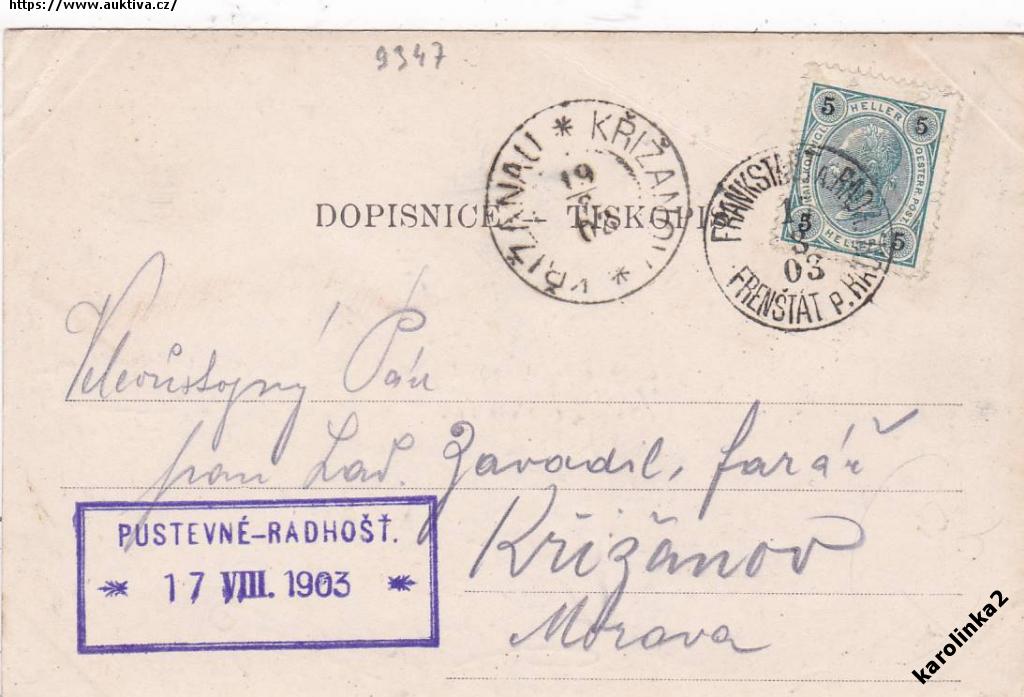 https://www.auktiva.cz/
9347
5 HELLER 5
OESTERR. POST.
5 HELLER 5
KŘIŽANAU * KŘIŽANOV *
19
03
FRANKSTADT A. RAD.
17
8
03
FRENŠTÁT P. RADH.
DOPISNICE — TISKOPIS
Velevůstojný Pán
pan Lad. Zavadil, farář
Křižanov
Morava
PUSTEVNÉ-RADHOŠŤ.
* 17 VIII. 1903 *
karolinka2